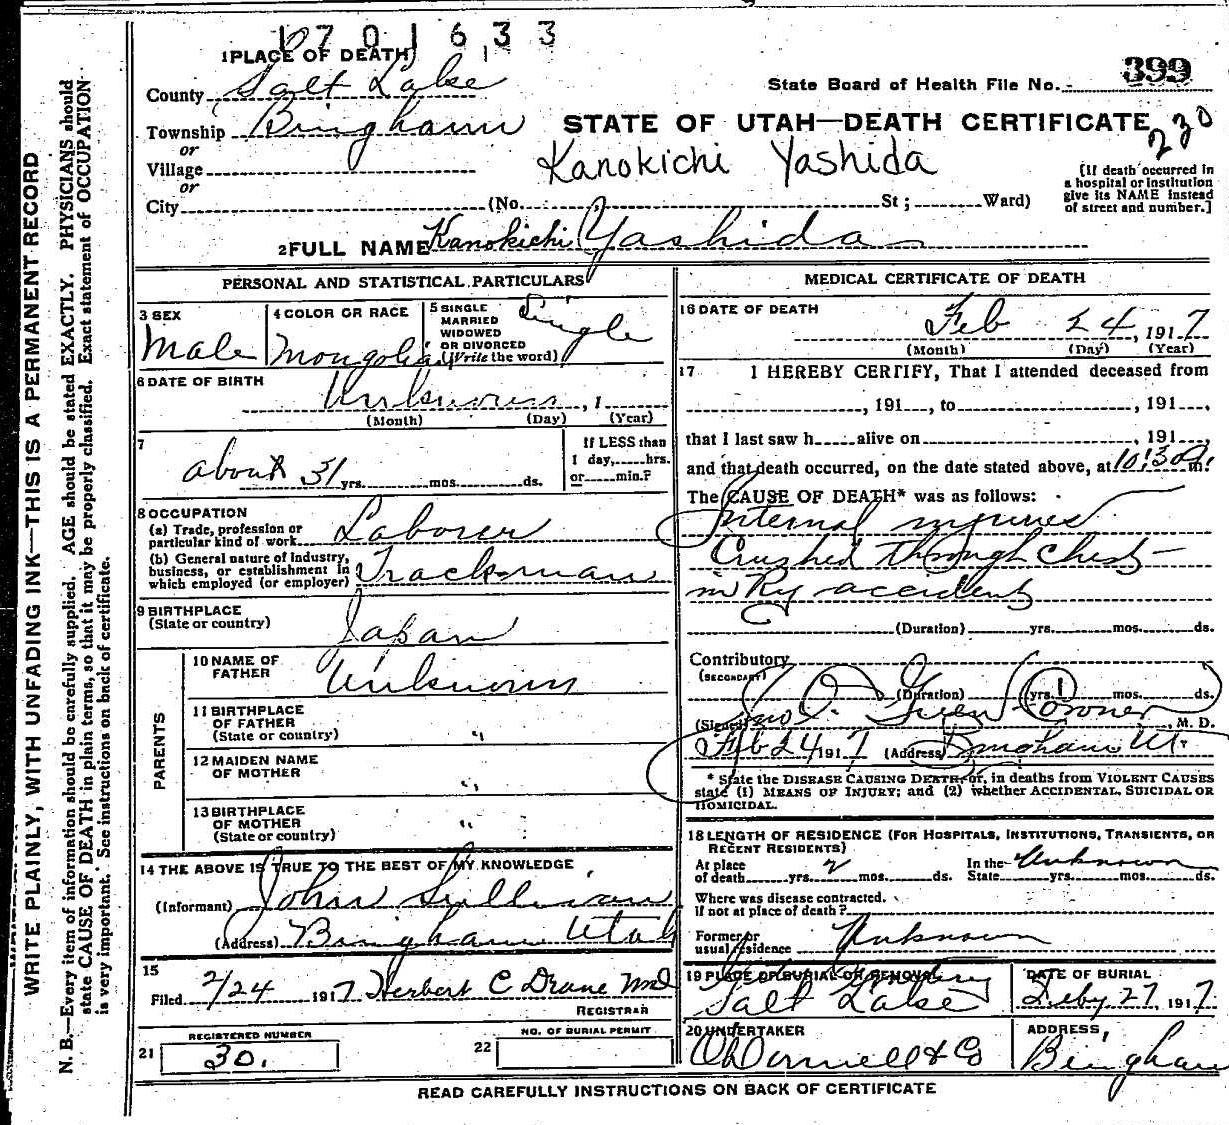 1701633
1 PLACE OF DEATH
399
State Board of Health File No.
County Salt Lake
Township Bingham
STATE OF UTAH—DEATH CERTIFICATE
230
or
Village
Kanokichi Yashida
or
City (No. St; Ward)
[If death occurred in
a hospital or institution
give its NAME instead
of street and number.]
2 FULL NAME Kanokichi Yashida
PERSONAL AND STATISTICAL PARTICULARS
3 SEX
Male
4 COLOR OR RACE
Mongolian
5 SINGLE
MARRIED
WIDOWED
OR DIVORCED
(Write the word)
Single
6 DATE OF BIRTH
Unknown, 1
(Month) (Day) (Year)
7
about 31 yrs. mos. ds.
If LESS than
1 day, hrs.
or min.?
8 OCCUPATION
(a) Trade, profession or
particular kind of work Laborer
(b) General nature of industry,
business, or establishment in
which employed (or employer) Trackman
9 BIRTHPLACE
(State or country)
Japan
PARENTS
10 NAME OF
FATHER
Unknown
11 BIRTHPLACE
OF FATHER
(State or country) "
12 MAIDEN NAME
OF MOTHER "
13 BIRTHPLACE
OF MOTHER
(State or country) "
14 THE ABOVE IS TRUE TO THE BEST OF MY KNOWLEDGE
(Informant) John Sullivan
(Address) Bingham Utah
15
Filed 2/24 1917 Herbert C Drane MD
REGISTRAR
REGISTERED NUMBER
21 30.
NO. OF BURIAL PERMIT
22
MEDICAL CERTIFICATE OF DEATH
16 DATE OF DEATH
Feb 24, 1917
(Month) (Day) (Year)
17 I HEREBY CERTIFY, That I attended deceased from
, 191 , to , 191 ,
that I last saw h alive on , 191 ,
and that death occurred, on the date stated above, at 10:30 a m.
The CAUSE OF DEATH* was as follows:
Internal injuries
Crushed through Chest
in Ry accident
(Duration) yrs. mos. ds.
Contributory
(SECONDARY)
(Duration) yrs. 1 mos. ds.
(Signed) Jno Green Coroner, M. D.
Feb 24 1917 (Address) Bingham Ut.
* State the DISEASE CAUSING DEATH, or, in deaths from VIOLENT CAUSES
state (1) MEANS OF INJURY; and (2) whether ACCIDENTAL, SUICIDAL OR
HOMICIDAL.
18 LENGTH OF RESIDENCE (FOR HOSPITALS, INSTITUTIONS, TRANSIENTS, OR
RECENT RESIDENTS)
At place
of death yrs. 2 mos. ds.
In the
State yrs. mos. ds. Unknown
Where was disease contracted.
if not at place of death?
Former or
usual residence Unknown
19 PLACE OF BURIAL OR REMOVAL
Salt Lake
DATE OF BURIAL
Feby 27 1917
20 UNDERTAKER
O'Donnell & Co
ADDRESS,
Bingham
READ CAREFULLY INSTRUCTIONS ON BACK OF CERTIFICATE
WRITE PLAINLY, WITH UNFADING INK—THIS IS A PERMANENT RECORD
N. B.—Every item of information should be carefully supplied. AGE should be stated EXACTLY. PHYSICIANS should
state CAUSE OF DEATH in plain terms, so that it may be properly classified. Exact statement of OCCUPATION
is very important. See instructions on back of certificate.